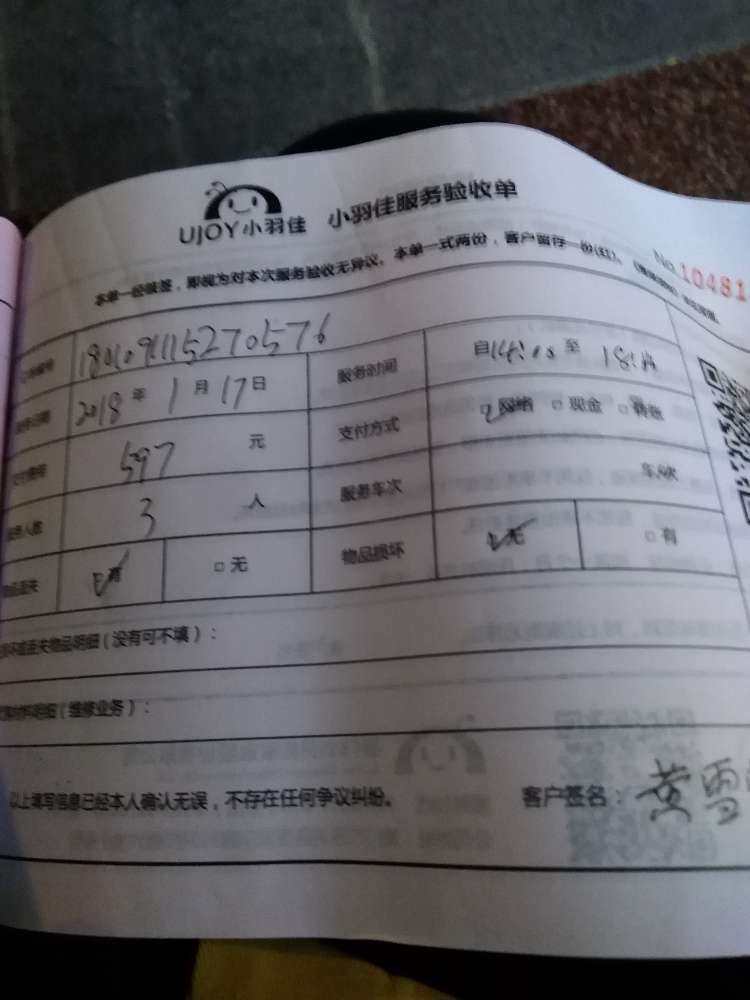 UJOY小羽佳 小羽佳服务验收单
本单一经签签，即视为对本次服务验收无异议。本单一式两份，客户留存一份(红)。
No.10481
编号 180109115270576
日期 2018年1月17日 服务时间 自14:00至18:
费用 597元 支付方式 ☑网络 □现金 □转账
人数 3人 服务车次 车/次
物品丢失 ☑有 □无 物品损坏 ☑无 □有
丢失物品明细（没有可不填）：
明细（维修业务）：
以上填写信息已经本人确认无误，不存在任何争议纠纷。 客户签名：黄雪